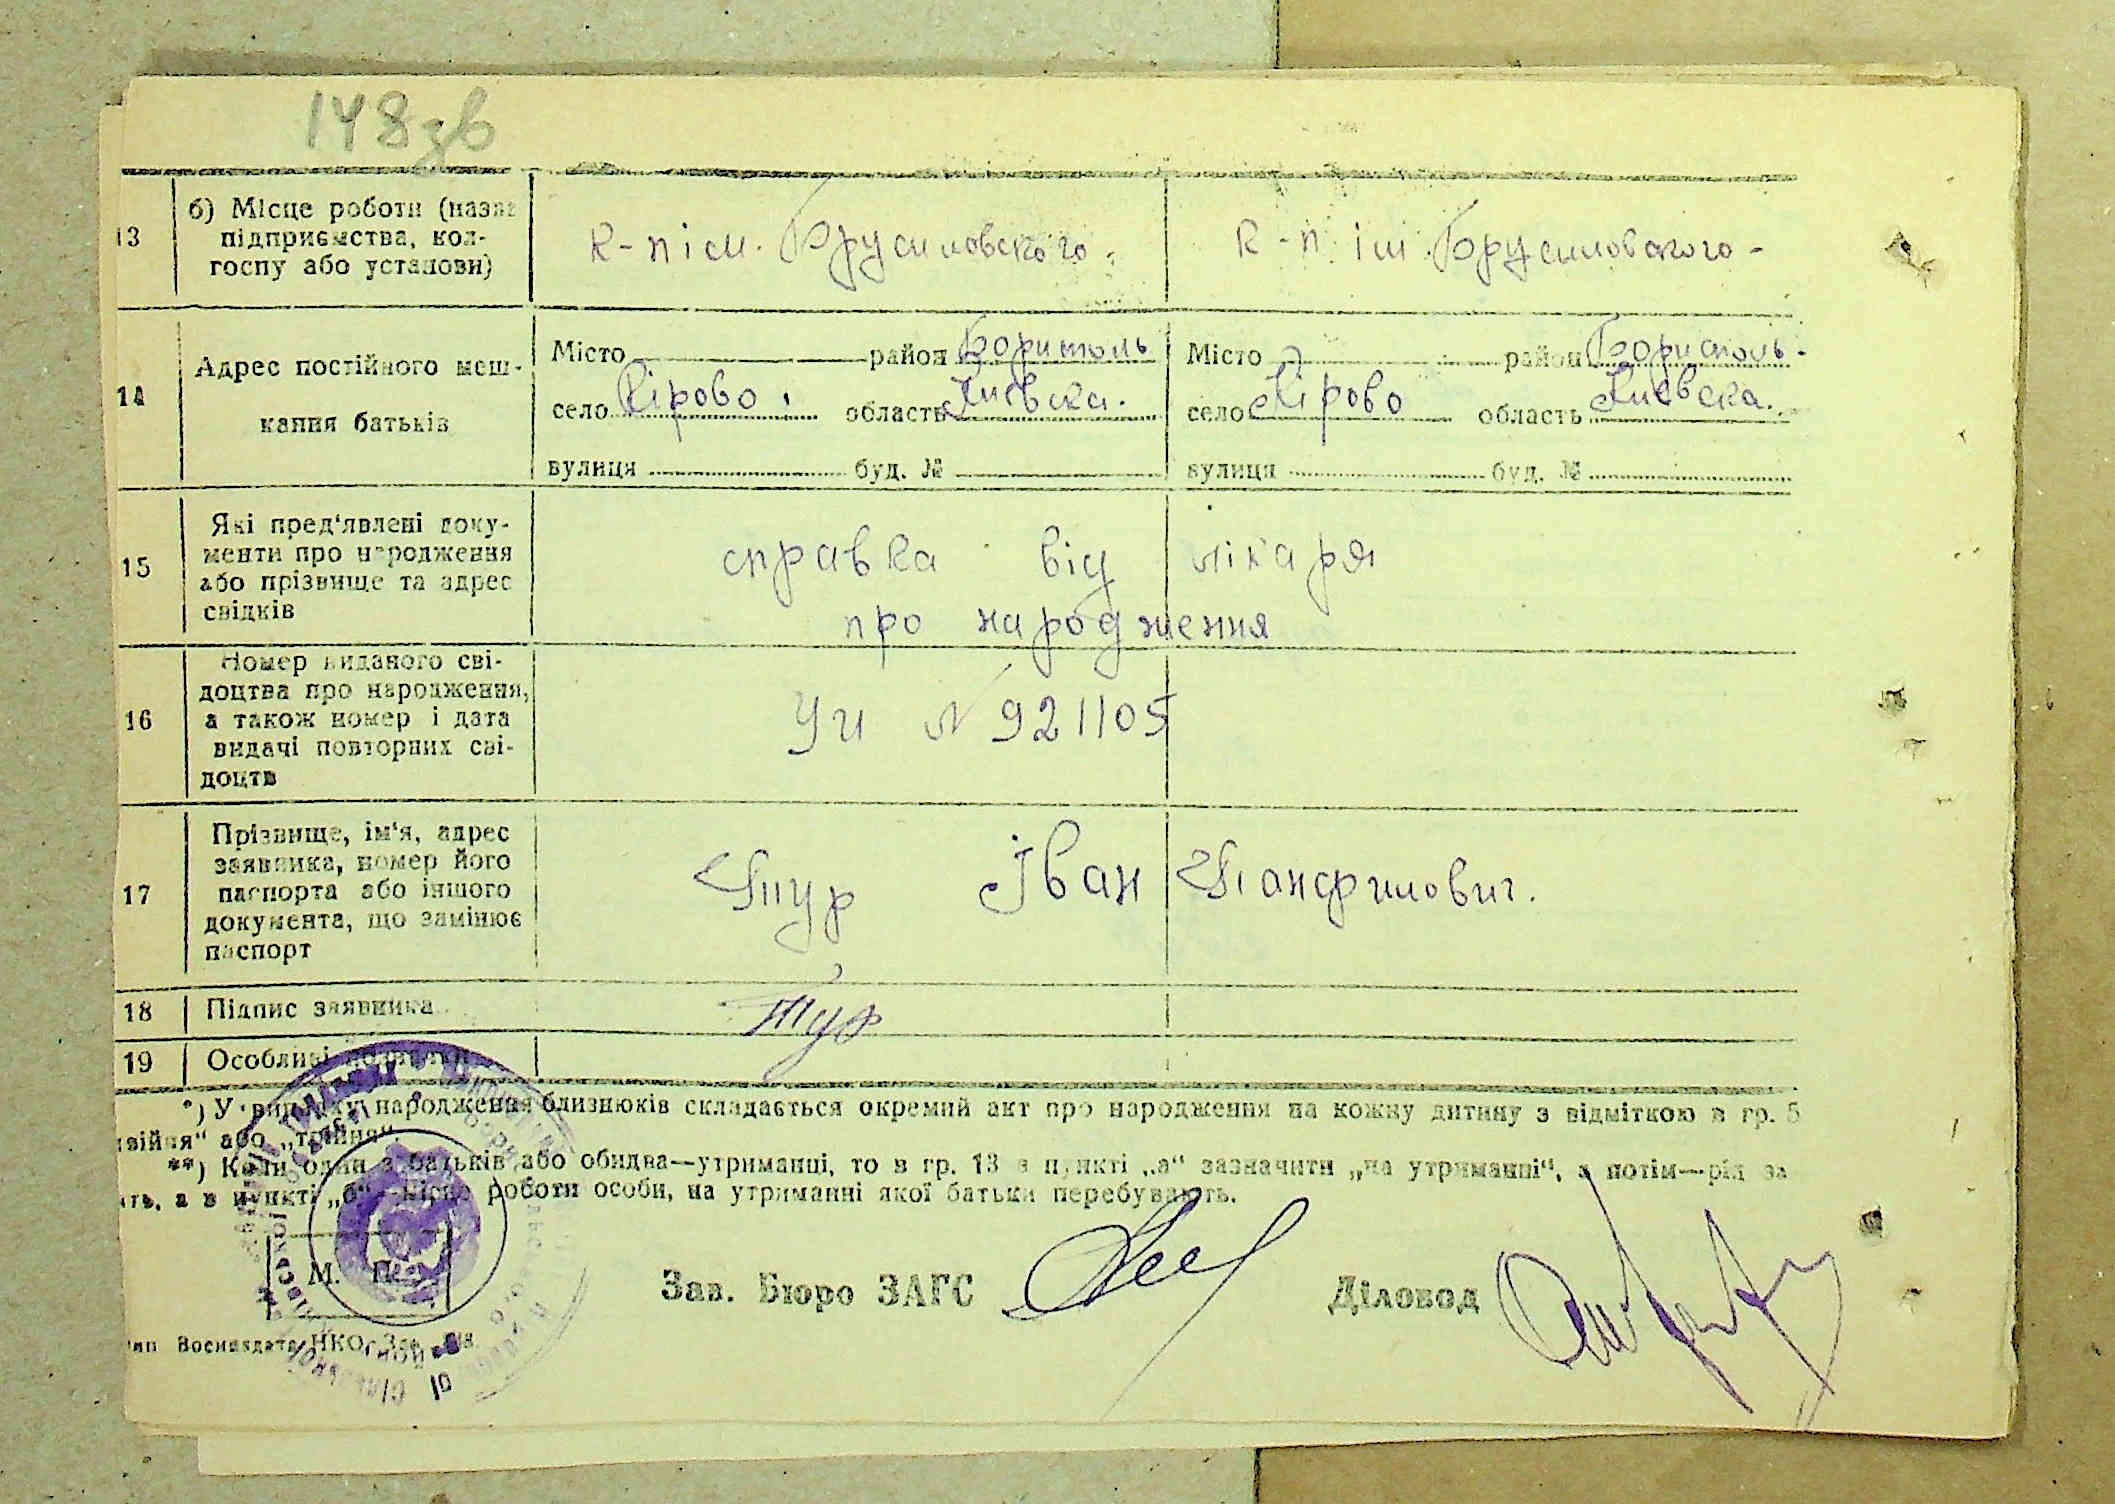 148зв
13
б) Місце роботи (назва
підприємства, кол-
госпу або установи)
к-п ім. Брусиловского.
к-п ім. Брусиловского -
14
Адрес постійного меш-
кання батьків
Місто район Бориспіль
село Кірово. область Киевска.
вулиця буд. №
Місто район Бориспіль.
село Кірово область Киевска.
вулиця буд. №
15
Які пред'явлені доку-
менти про народження
або прізвище та адрес
свідків
справка від лікаря
про народження
16
Номер виданого сві-
доцтва про народження,
а також номер і дата
видачі повторних сві-
доцтв
УИ № 921105
17
Прізвище, ім'я, адрес
заявника, номер його
паспорта або іншого
документа, що замінює
паспорт
Тур Іван Панфилович.
18
Підпис заявника
Тур
19
Особливі
*) У випадку народження близнюків складається окремий акт про народження на кожну дитину з відміткою в гр. 5
„двійня“ або „трійня“.
**) Коли один з батьків або обидва—утриманці, то в гр. 13 в пункті „а“ зазначити „на утриманні“, а потім—рід за
а в пункті „б“ місце роботи особи, на утриманні якої батьки перебувають.
М. П.
Зав. Бюро ЗАГС
Діловод
Воениздата НКО